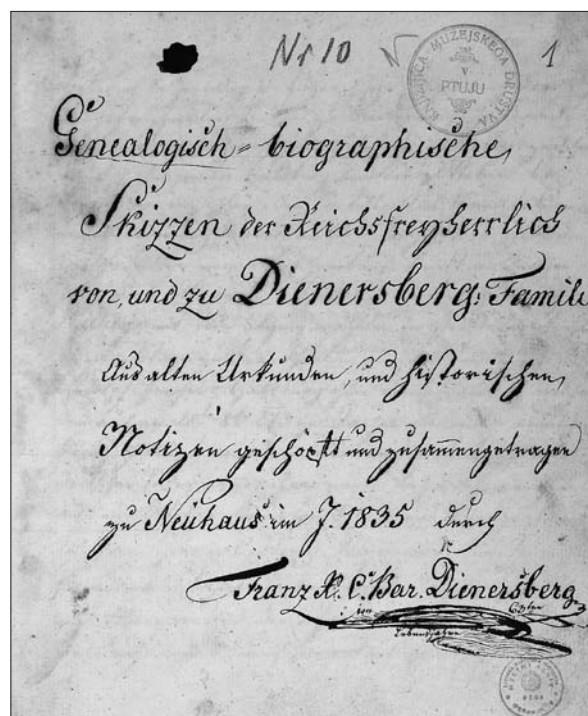 Nr 10 1
KNJIŽNICA MUZEJSKEGA DRUŠTVA
V
PTUJU
Genealogisch=biographische,
Skizzen der Reichsfreyherrlich
von, und zu Dienersberg: Famili
Aus alten Urkunden, und historischen,
Notizen geschöpft und zusammengetragen
zu Neuhaus im J. 1835 durch
Franz X. C. Bar. Dienersberg
: im 62sten
Lebensjahre